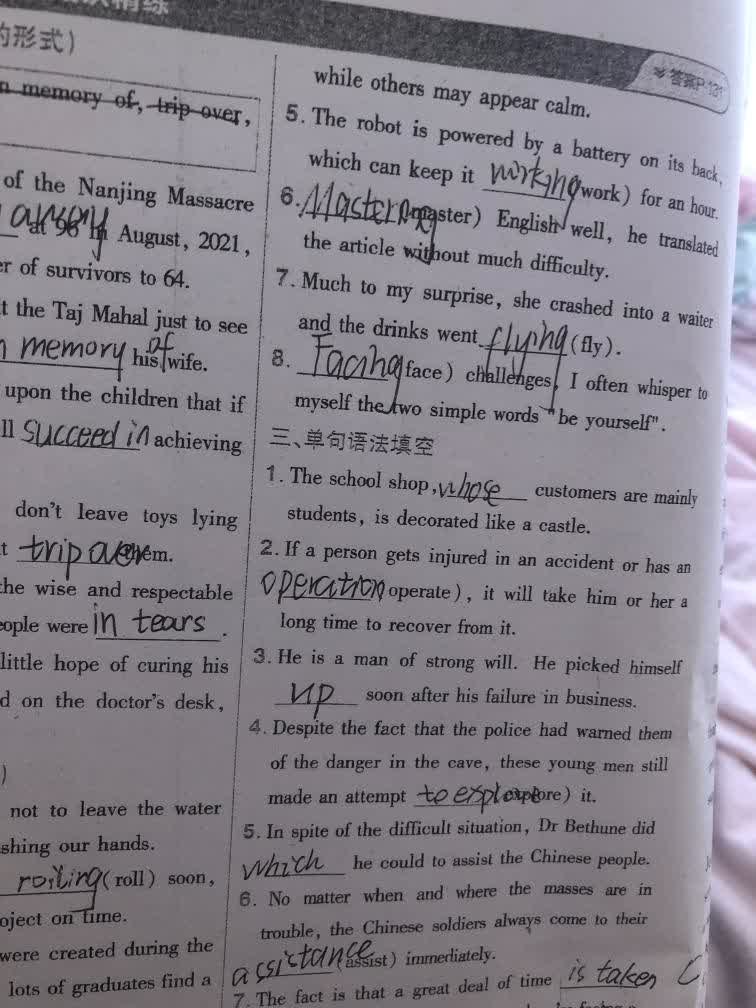 精练
的形式)
n memory of, trip over,
of the Nanjing Massacre
at 96 in August, 2021,
er of survivors to 64.
t the Taj Mahal just to see
n memory of his wife.
upon the children that if
ll succeed in achieving
don't leave toys lying
t trip over them.
the wise and respectable
eople were in tears.
little hope of curing his
d on the doctor's desk,
)
not to leave the water
shing our hands.
roiling (roll) soon,
oject on time.
were created during the
lots of graduates find a
答案P.131
while others may appear calm.
5. The robot is powered by a battery on its back,
which can keep it working (work) for an hour.
6. Mastering (master) English well, he translated
the article without much difficulty.
7. Much to my surprise, she crashed into a waiter
and the drinks went flying (fly).
8. Facing (face) challenges, I often whisper to
myself the two simple words "be yourself".
三、单句语法填空
1. The school shop, whose customers are mainly
students, is decorated like a castle.
2. If a person gets injured in an accident or has an
operation (operate), it will take him or her a
long time to recover from it.
3. He is a man of strong will. He picked himself
up soon after his failure in business.
4. Despite the fact that the police had warned them
of the danger in the cave, these young men still
made an attempt to explore (explore) it.
5. In spite of the difficult situation, Dr Bethune did
which he could to assist the Chinese people.
6. No matter when and where the masses are in
trouble, the Chinese soldiers always come to their
assictance (assist) immediately.
7. The fact is that a great deal of time is taken